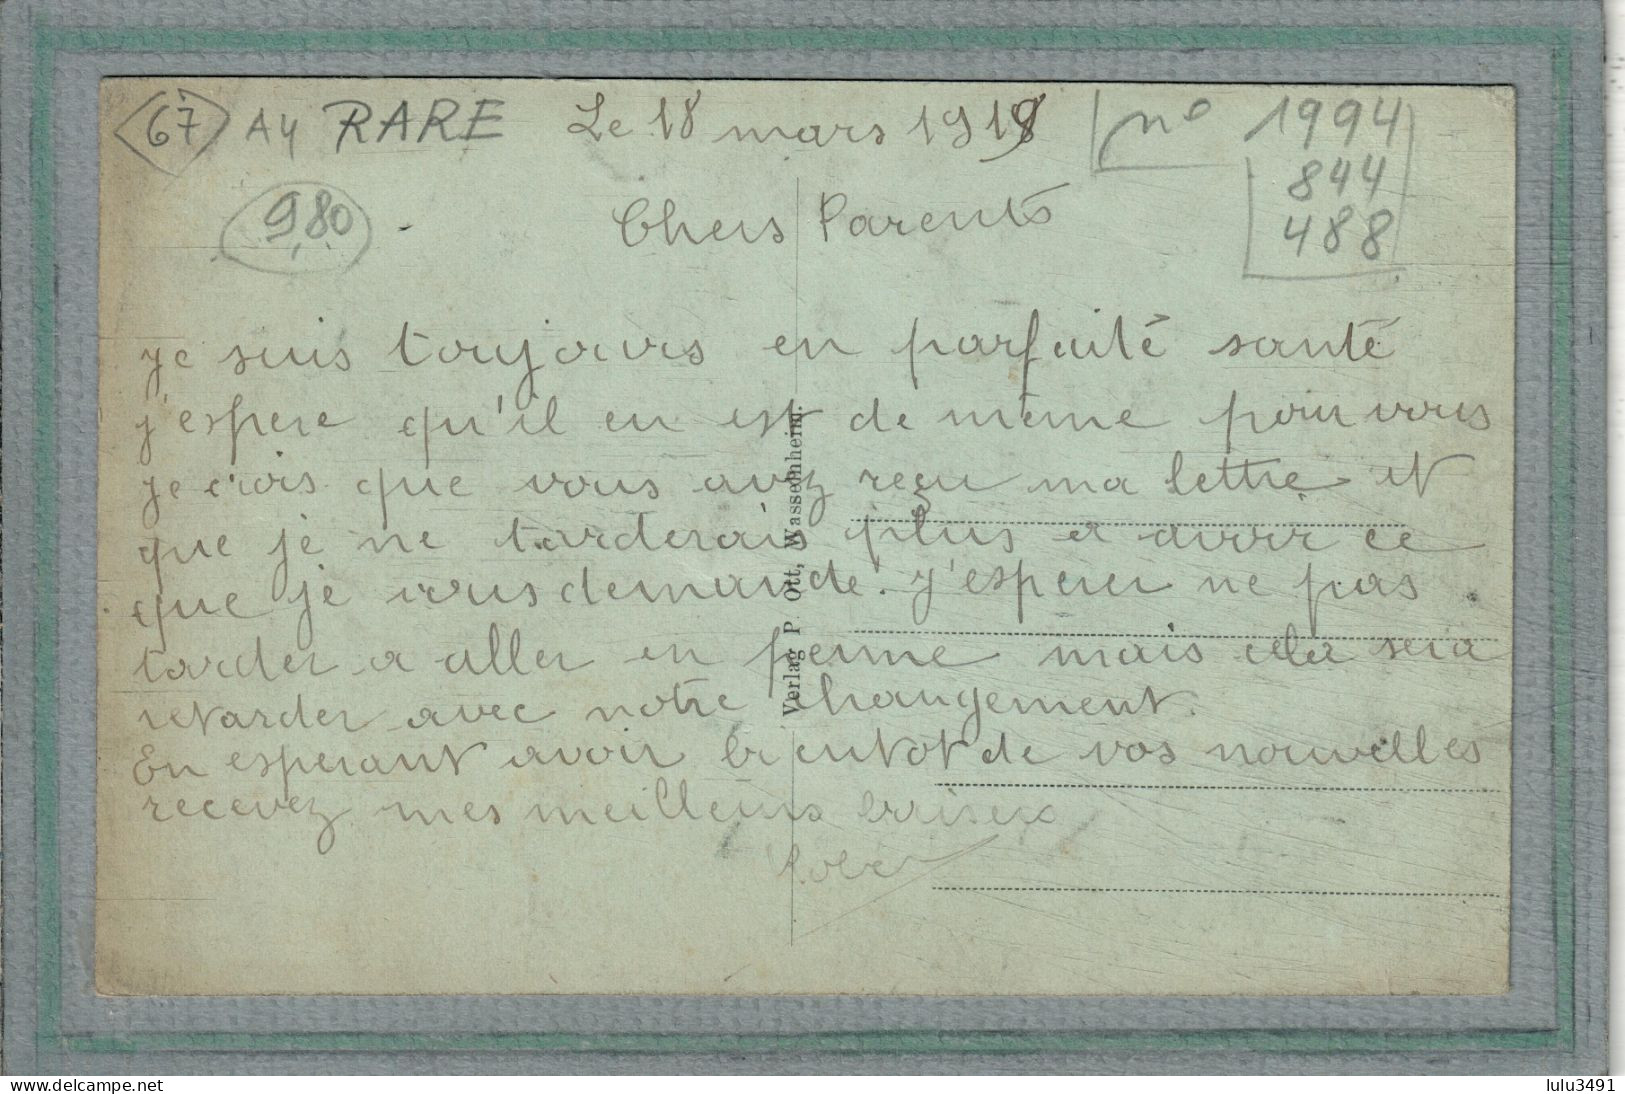 67 A4 RARE Le 18 mars 1919 n° 1994
844
9,80 Chers Parents 488
je suis toujours en parfaite santé
j'espere qu'il en est de même pour vous
je crois que vous avez reçu ma lettre et
que je ne tarderais plus a avoir ce
que je vous demande. j'esperer ne pas
tarder a aller en perme mais cela sera
retarder avec notre changement.
En esperant avoir bientot de vos nouvelles
recevez mes meilleurs baisers
Verlag P. Ott, Wasselnheim.
www.delcampe.net
lulu3491